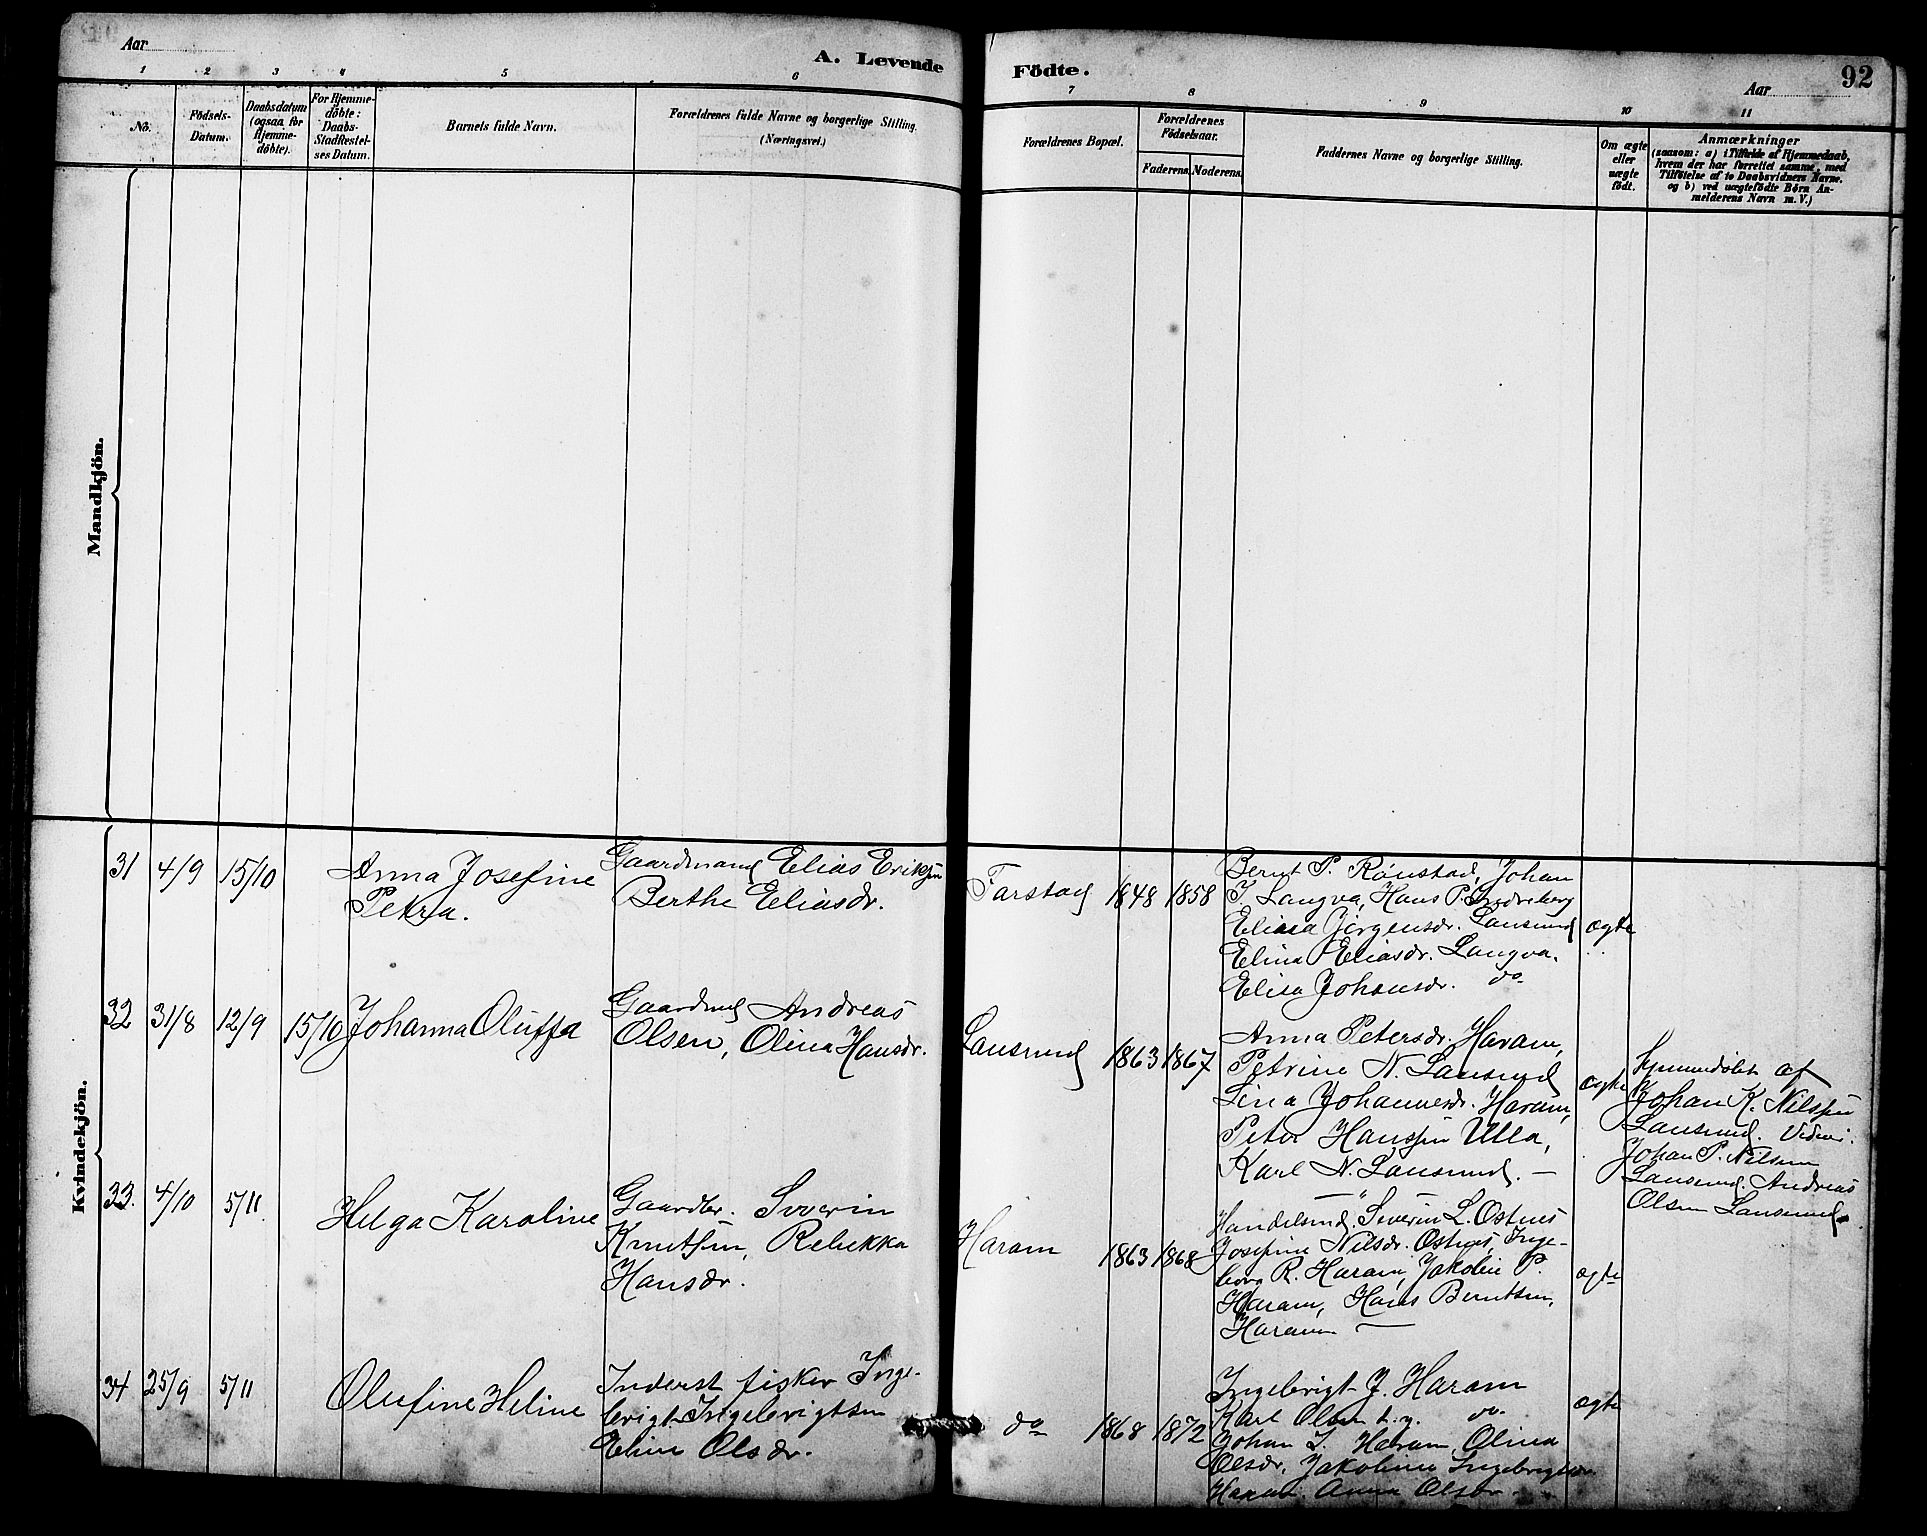 Aar
A. Levende
Födte.
Aar
92
1 2 3 4 5 6 7 8 9 10 11
No.
Födsels-
Datum.
Daabsdatum
(ogsaa for
Hjemme-
döbte).
For Hjemme-
döbte:
Daabs-
Stadfæstel-
ses Datum.
Barnets fulde Navn.
Forældrenes fulde Navne og borgerlige Stilling.
(Næringsvei.)
Forældrenes Bopæl.
Forældrenes
Födselsaar.
Faderens. Moderens.
Faddernes Navne og borgerlige Stilling.
Om ægte
eller
uægte
født.
Anmærkninger
(saasom: a) i Tilfælde af Hjemmedaab,
hvem der har forrettet samme, med
Tilföielse af to Daabsvidners Navne.
og b) ved uægtefödte Börn An-
melderens Navn m.V.)
Mandkjön.
Kvindekjön.
31 4/9 15/10
Anna Josefine
Petra.
Gaardmand Elias Eriksen
Berthe Eliasdr.
Farstad 1848 1858
Bernt P. Rønstad, Johan
J. Langva, Hans P.
Elisa Jörgensdr. Lansund
Elina Eliasdr. Langva.
Elisa Johansdr. do
ægte
32 31/8 12/9 15/10
Johanna Oluffa
Gaardmd Andreas
Olsen, Olina Hansdr.
Lansund 1863 1867
Anna Petersdr. Haram,
Petrine N. Lansund
Lina Johannesdr. Haram,
Peter Hanssen Ulla,
Karl N. Lansund. —
ægte
Hjemmedöbt af
Johan K. Nilssen
Lansund. Vidner.
Johan P. Nilsen
Lansund. Andreas
Olsen Lansund.
33. 4/10 5/11
Helga Karoline
Gaardbr. Severin
Knutsen, Rebekka
Hansdr.
Haram 1863 1868
Handelsmd. Severin L. Ostnes
Josefine Nilsdr. Ostnes, Inge-
borg R. Haram, Jakobie P.
Haram, Hans Berntsen,
Haram —
ægte
34 25/9 5/11
Olufine Heline
Inderst fisker Inge-
brigt Ingebrigtsen
Eline Olsdr.
do 1868 1872
Ingebrigt J. Haram
Karl Olsen t.y. do
Johan L. Haram, Olina
Olsdr. Jakobine Ingebrigtsdr.
Haram. Anna Olsdr.
ægte